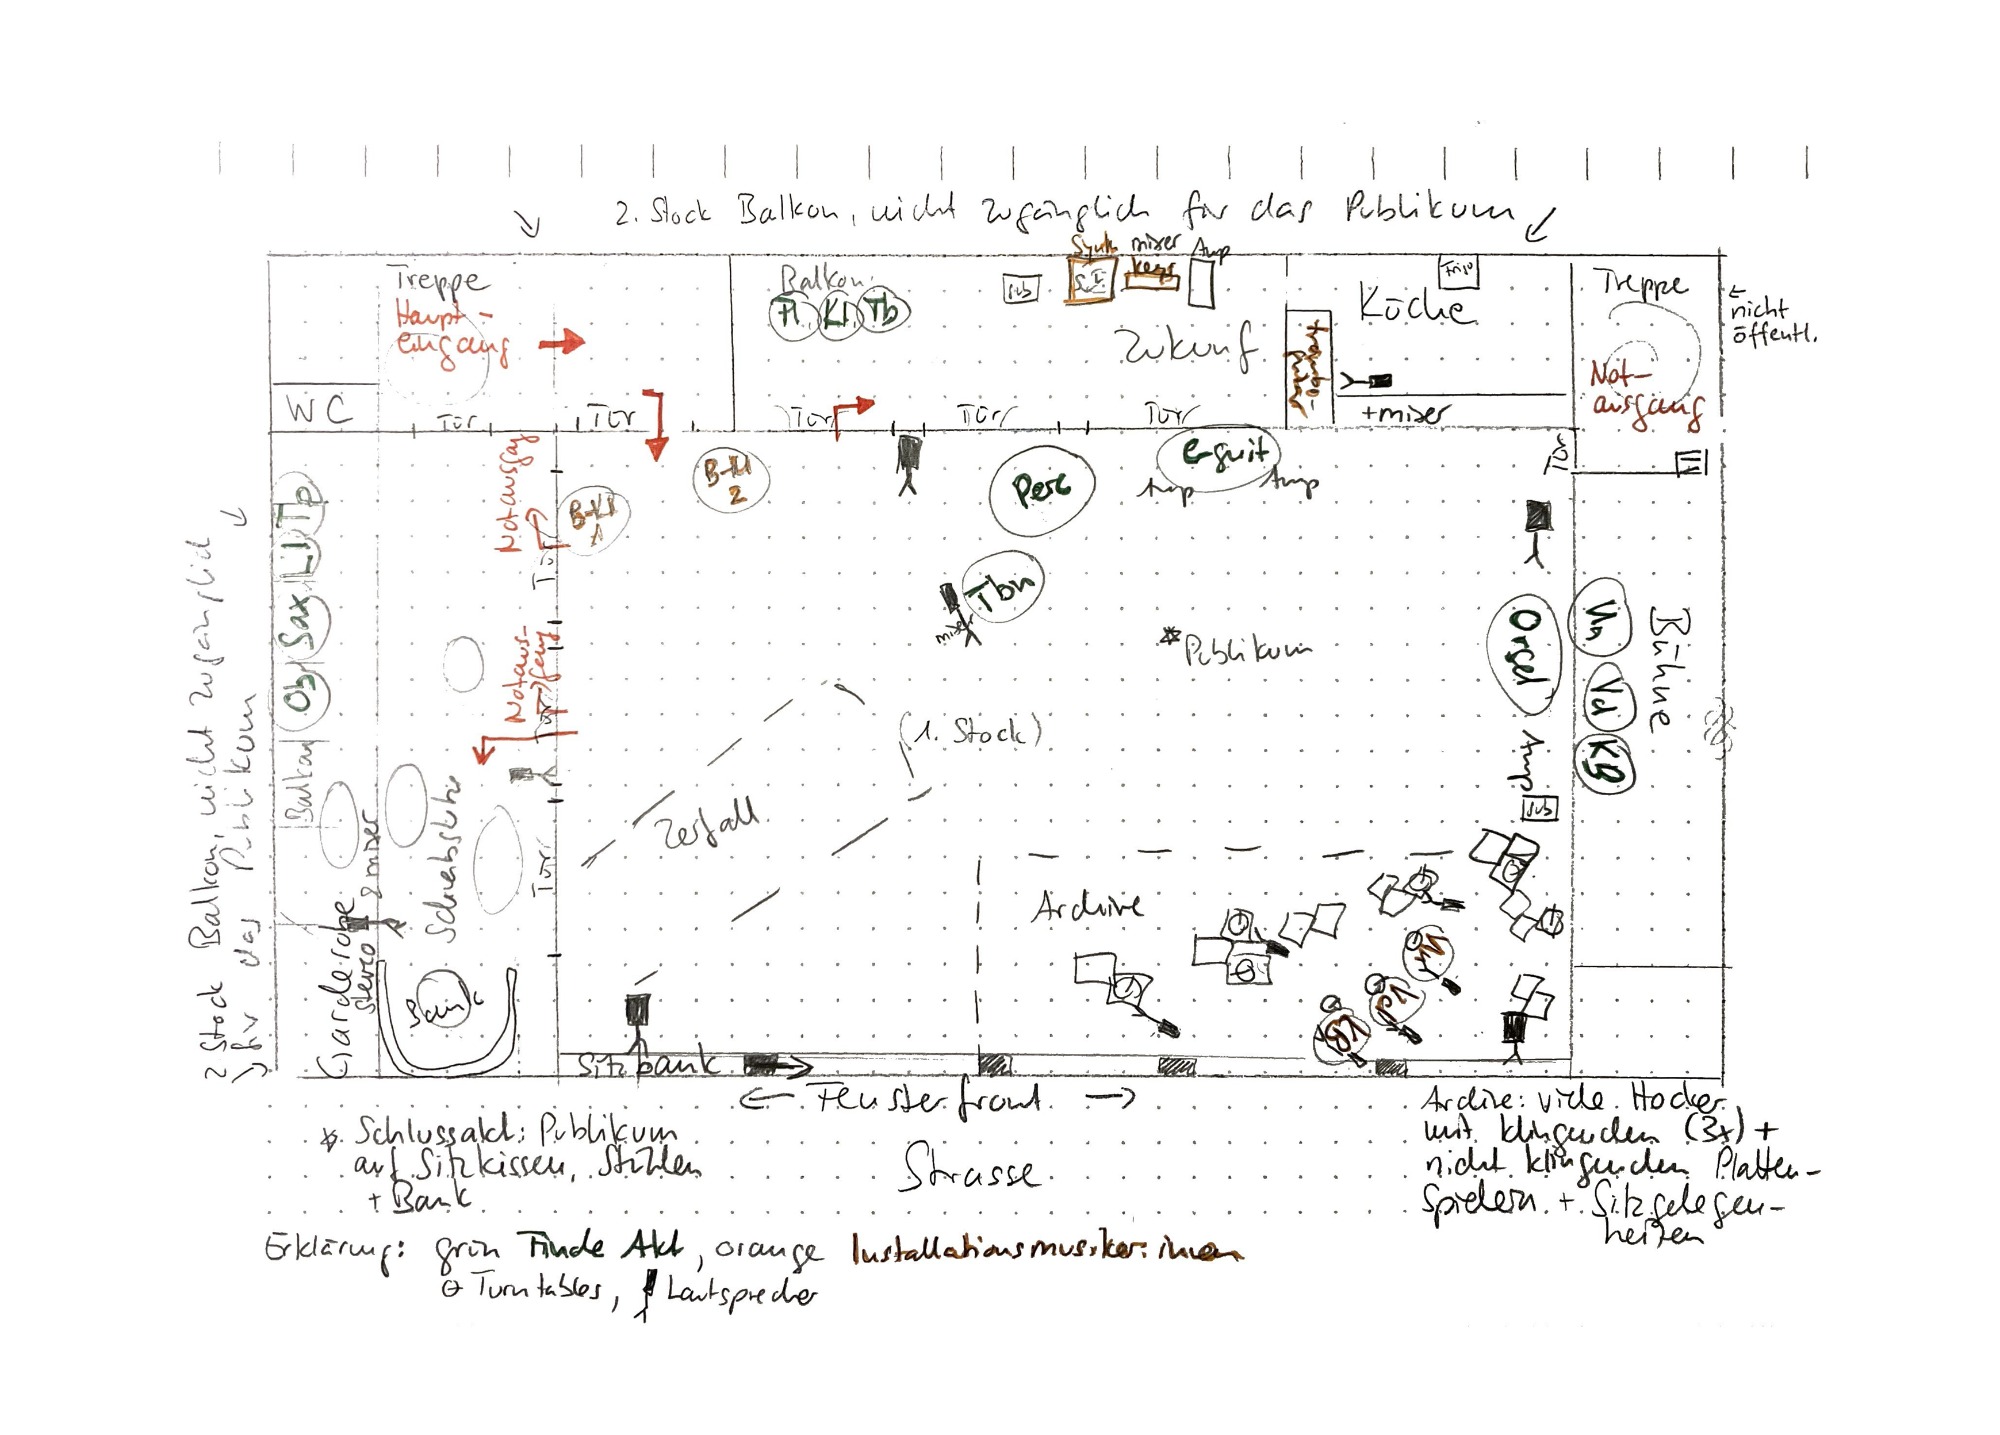 2. Stock Balkon, nicht zugänglich für das Publikum
Treppe
Haupt-
eingang
WC
Tür
Tür
Balkon
Fl Kl Tb
Sub
Synth
mixer
keys
Amp
Zukunf
Tür
Tür
Tür
Küche
+mixer
Treppe
Not-
ausgang
← nicht
öffentl.
Tür
2 Stock Balkon, nicht zugänglich
für das Publikum
Balkon
Ob Sax Tp
Notausgang
Tür
Notaus-
gang
Tür
Tür
B-Kl
1
B-Kl
2
Perc
e-guit
Amp
Amp
Tbn
mixer
*Publikum
(1. Stock)
Zerfall
Orgel
Amp
Sub
Vn
Vcl
KB
Bühne
Garderobe
stereo
& mixer
Bank
Archive
Vn
Vcl
KB
Sitzbank
← Fensterfront →
Strasse
* Schlussakt: Publikum
auf Sitzkissen, Stühlen
+ Bank
Archive: viele Hocker
mit klingenden (3x) +
nicht klingenden Platten-
spielern + Sitzgelegen-
heiten
Erklärung: grün Finale Akt, orange Installationsmusiker:innen
Turntables, Lautsprecher